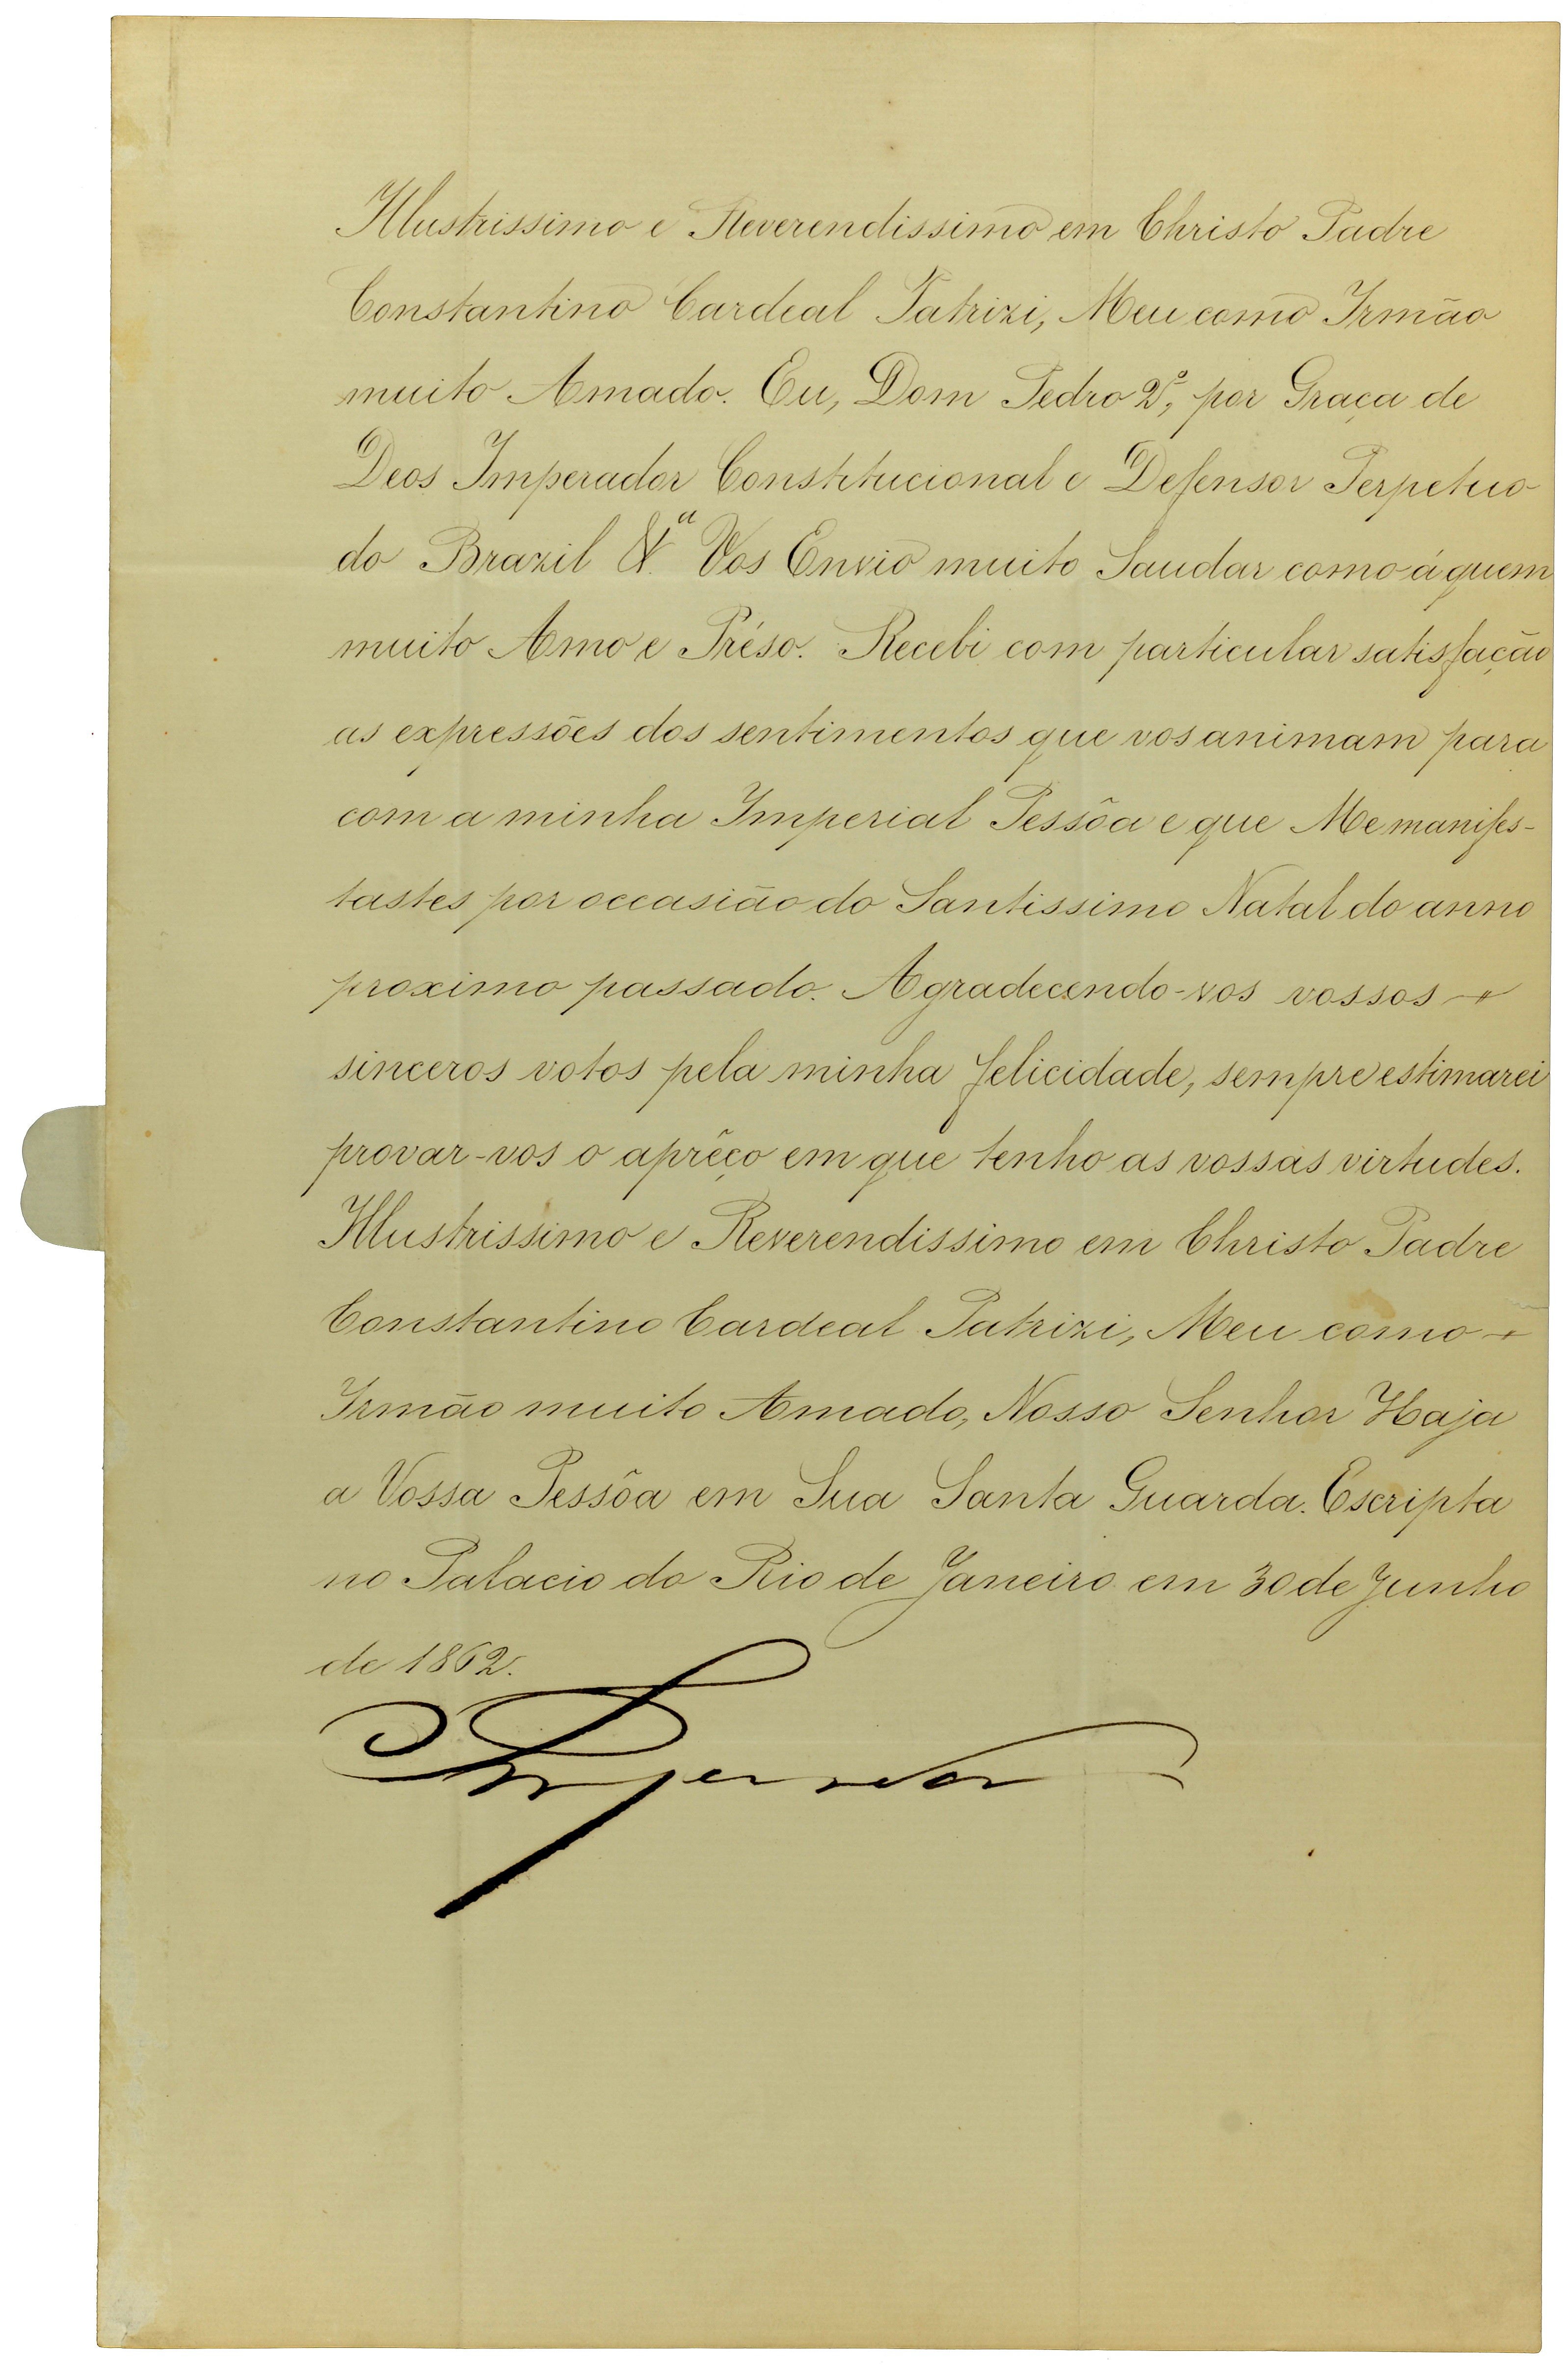 Illustrissimo e Reverendissimo em Christo Padre
Constantino Cardeal Patrizi, Meu como Irmão
muito Amado. Eu, Dom Pedro 2º, por Graça de
Deos Imperador Constitucional e Defensor Perpetuo
do Brazil &.ª Vos Envio muito Saudar como á quem
muito Amo e Préso. Recebi com particular satisfação
as expressões dos sentimentos que vos animam para
com a minha Imperial Pessôa e que Me manifes-
tastes por occasião do Santissimo Natal do anno
proximo passado. Agradecendo-vos vossos
sinceros votos pela minha felicidade, sempre estimarei
provar-vos o aprêço em que tenho as vossas virtudes.
Illustrissimo e Reverendissimo em Christo Padre
Constantino Cardeal Patrizi, Meu como
Irmão muito Amado, Nosso Senhor Haja
a Vossa Pessôa em Sua Santa Guarda. Escripta
no Palacio do Rio de Janeiro em 30 de Junho
de 1862.
Imperador